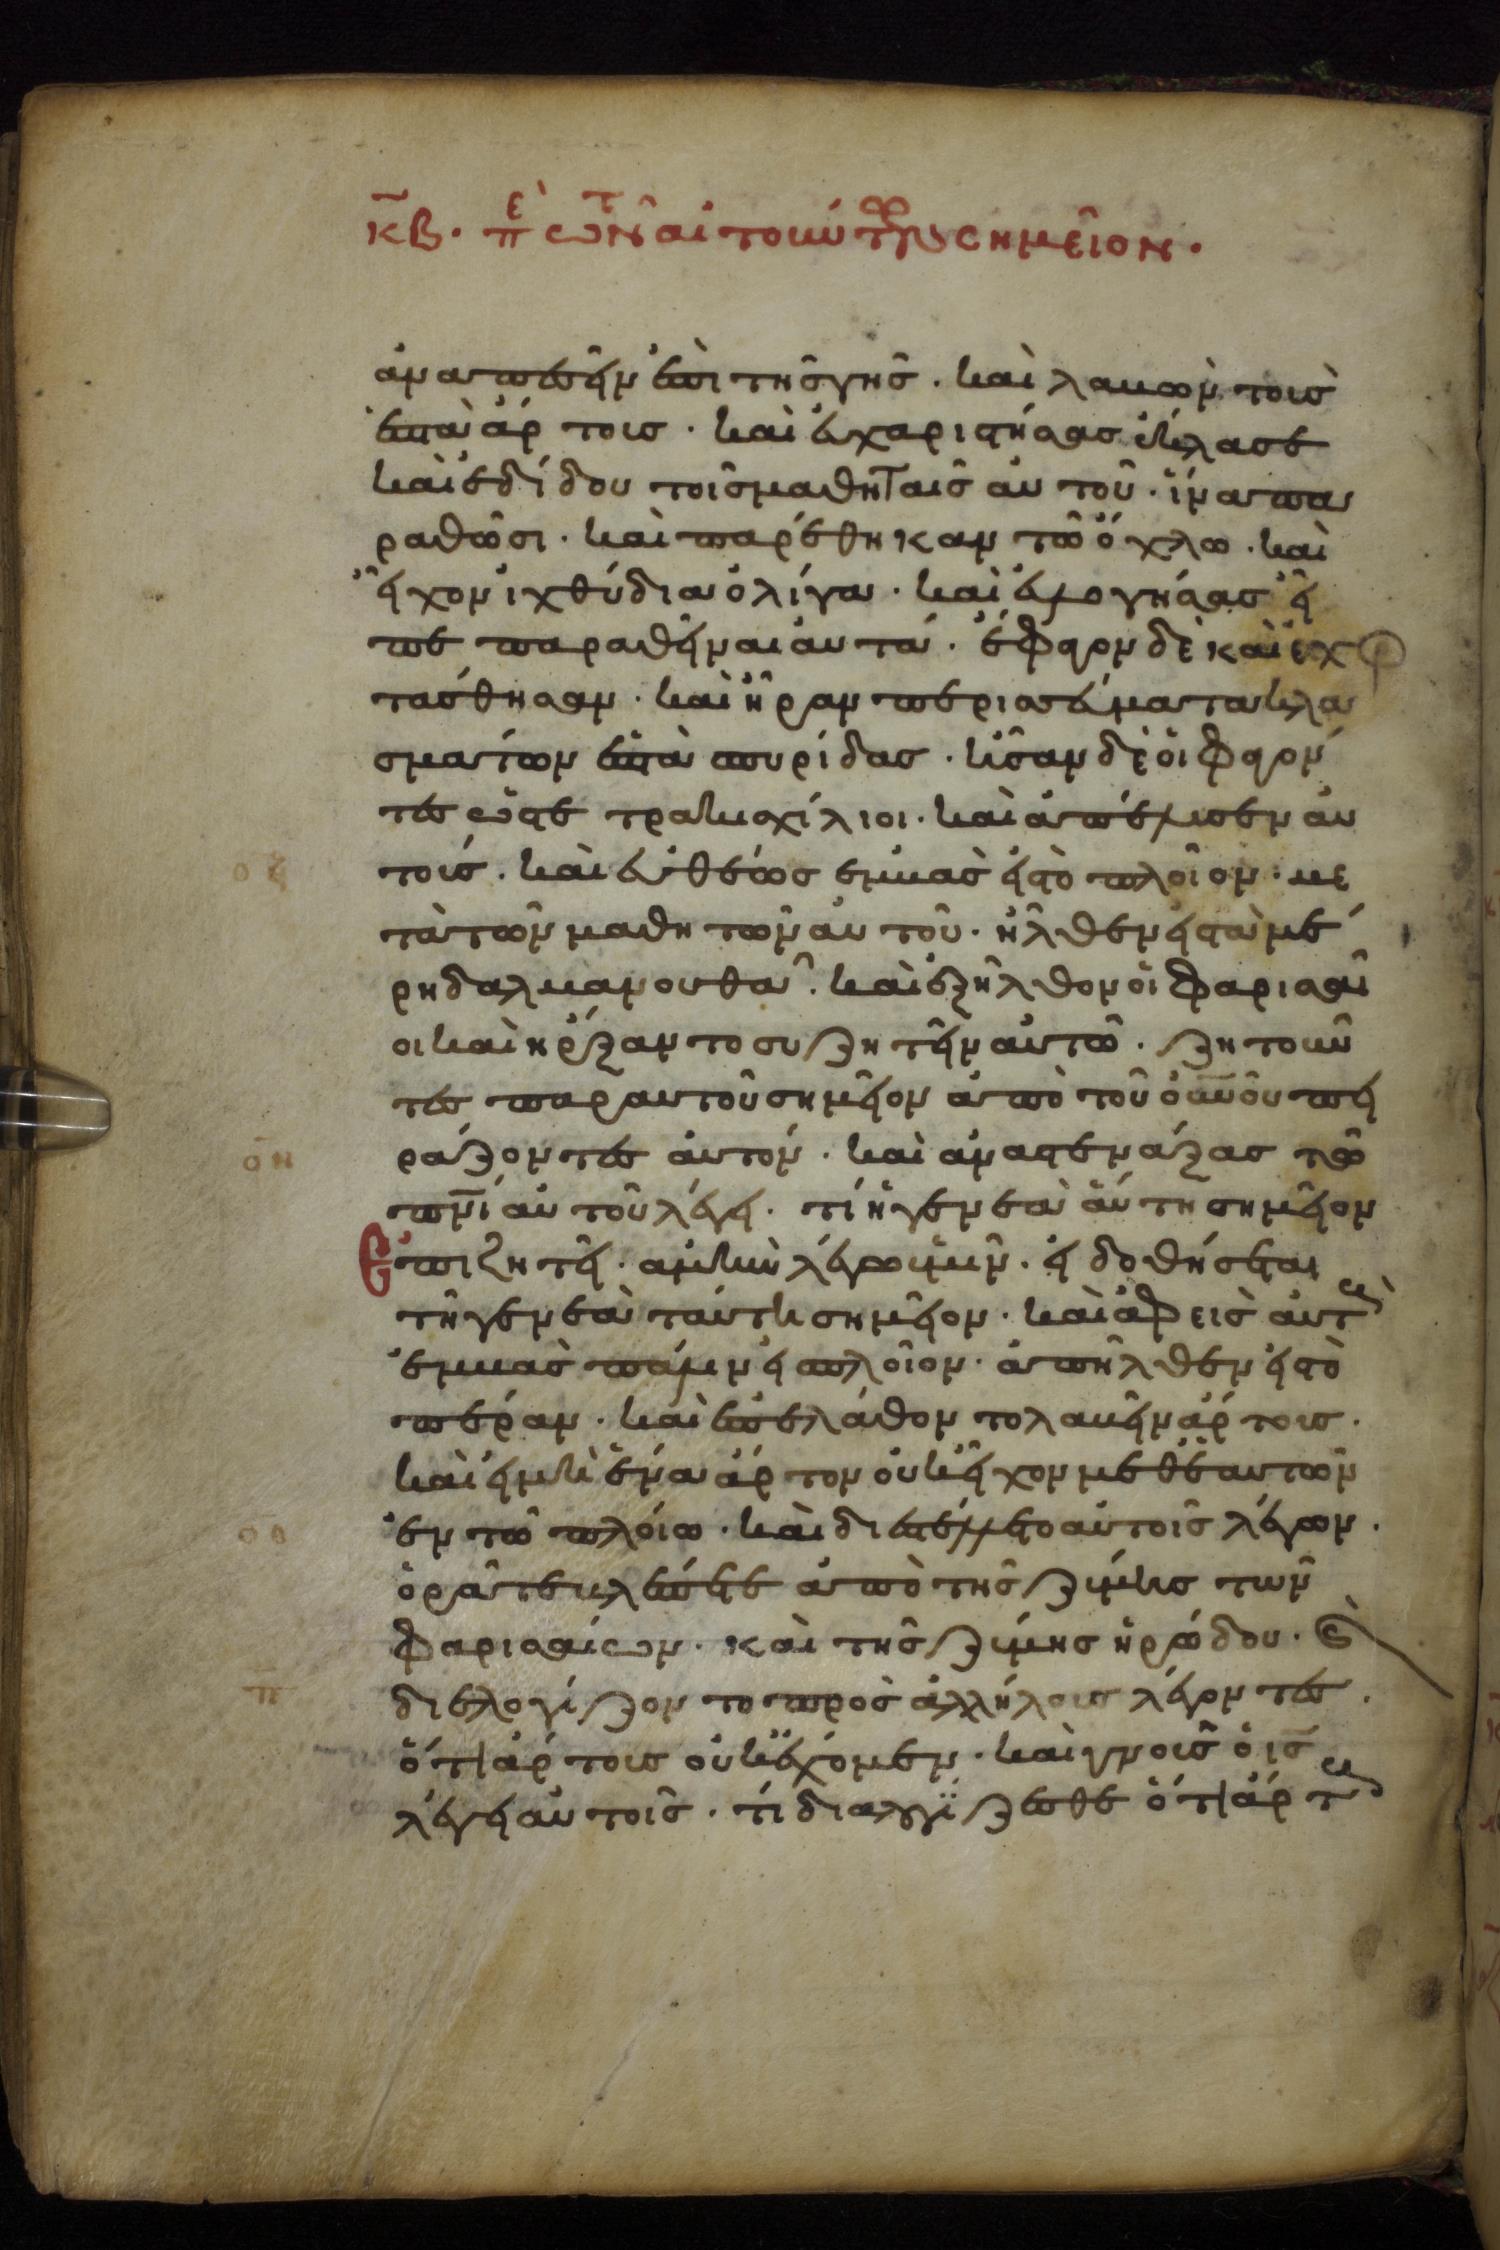 κβ· πὲ τῶν αἰτούντ σημεῖον·
ἀναπεσεῖν ἐπὶ τῆς γῆς· καὶ λαβὼν τοὺς
ἑπτὰ ἄρτους· καὶ εὐχαριστήσας ἔκλασε
καὶ ἐδίδου τοῖς μαθηταῖς αὐτοῦ· ἵνα πα
ραθῶσι· καὶ παρέθηκαν τῶ ὄχλω· καὶ
εἶχον ἰχθύδια ὀλίγα· καὶ εὐλογήσας εἶ
πε παραθεῖναι αὐτά· ἔφαγον δὲ καὶ ἐχορ
τάσθησαν· καὶ ἦραν περισσεύματα κλα
σμάτων ἑπτὰ σπυρίδας· ἦσαν δὲ οἱ φαγόν
τες ὡς τετρακισχίλιοι· καὶ ἀπέλυσεν αὐ
οζ τούς· καὶ εὐθέως ἐμβὰς εἰς τὸ πλοῖον· με
τὰ τῶν μαθητῶν αὐτοῦ· ἦλθεν εἰς τὰ μέ
ρη δαλμανουθᾶ· καὶ ἐξῆλθον οἱ φαρισαῖ
οι καὶ ἤρξαντο συζητεῖν αὐτῶ· ζητοῦν
τες παραυτοῦ σημεῖον ἀπὸ τοῦ οὐνοῦ πει
οη ράζοντες αὐτόν· καὶ ἀναστενάξας τῶ
πνι αὐτοῦ λέγει· τί ἡ γενεὰ αὕτη σημεῖον
Ἐπιζητεῖ· ἀμὴν λέγω ὑμῖν· εἰ δοθήσεται
τῆ γενεὰ ταύτη σημεῖον· καὶ ἀφεὶς αὐτοὺς
ἐμβὰς πάλιν εἰς πλοῖον· ἀπῆλθεν εἰς τὸ
πέραν· καὶ ἐπελάθοντο λαβεῖν ἄρτους·
καὶ εἰ μὴ ἕνα ἄρτον οὐκ εἶχον μεθ ἑαυτῶν
οθ ἐν τῶ πλοίω· καὶ διεστέλλετο αὐτοῖς λέγων·
ὁρᾶτε βλέπετε ἀπὸ τῆς ζύμης τῶν
φαρισαίων· καὶ τῆς ζύμης ἡρώδου· καὶ
π διελογίζοντο πρὸς ἀλλήλους λέγοντες·
ὅτι ἄρτους οὐκ ἔχομεν· καὶ γνοὺς ὁ ις
λέγει αὐτοῖς· τί διαλογίζεσθε ὅτι ἄρτους